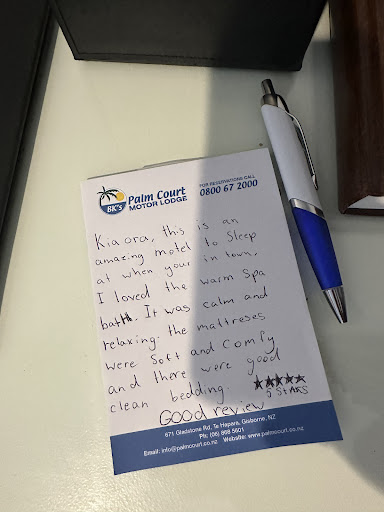 FOR RESERVATIONS CALL
0800 67 2000
BK's Palm Court
MOTOR LODGE
Kia ora, this is an
amazing motel to Sleep
at when your in town,
I loved the warm Spa
bath. It was calm and
relaxing. the mattreses
were Soft and comfy
and there were good
clean bedding. ★★★★★
5 STARS
GOOD review
671 Gladstone Rd, Te Hapara, Gisborne, NZ
Ph: (06) 868 5601
Email: info@palmcourt.co.nz Website: www.palmcourt.co.nz